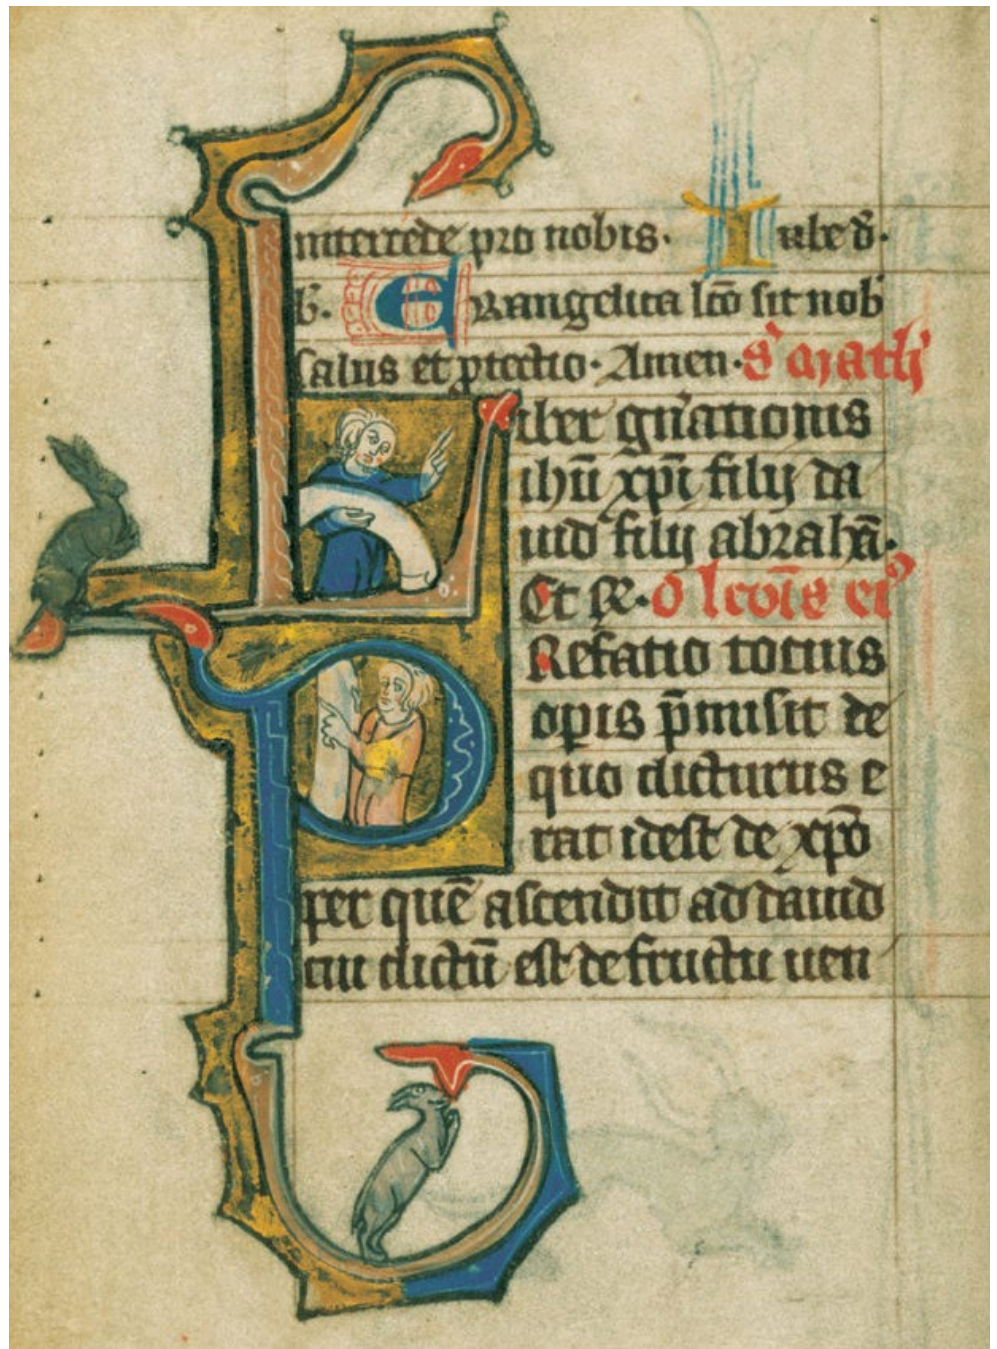 intercede pro nobis. Iube d̄.
b̄. Euangelica lc̄o sit nob̄
salus et p̱tectio. Amen. S' math'
Liber gn̄ationis
ihū xp̄i filij da
uid filij abrahā.
Et sē. O leōis ep̄
Prefatio tocius
op̱is p̄misit de
quo dicturus e
rat idest de xp̄o
per quē ascendit ad dauid
cui dictū est de fructu uen